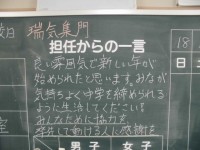 瑞気集門
担任からの一言
良い雰囲気で新しい年が
始められたと思います。みなが
気持ちよく中学を締められる
ように生活してください。
みんなために協力を
学級して動ける人に感謝を
18
日
土
室
男子
女子